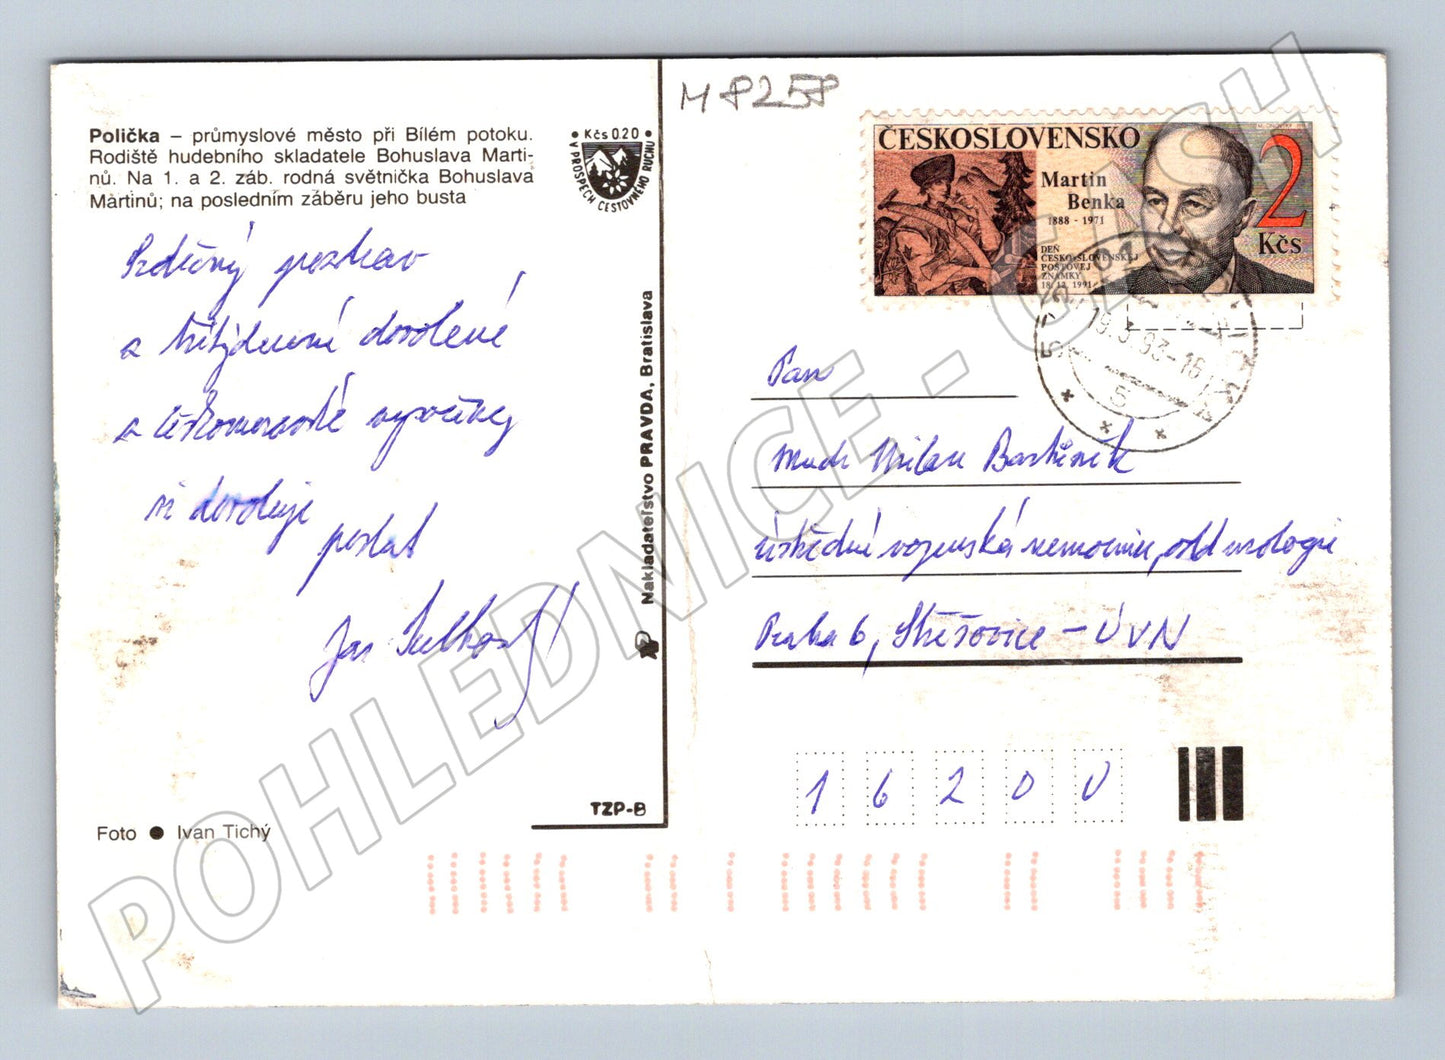 M 8258
Polička – průmyslové město při Bílém potoku.
Rodiště hudebního skladatele Bohuslava Marti-
nů. Na 1. a 2. záb. rodná světnička Bohuslava
Martinů; na posledním záběru jeho busta
• Kčs 0.20 •
V PROSPĚCH CESTOVNÍHO RUCHU
Srdečný pozdrav
z třítýdenní dovolené
z českomoravské vysočiny
si dovoluje
poslat
Jan
Foto ● Ivan Tichý
Nakladatelství PRAVDA, Bratislava
TZP-B
ČESKOSLOVENSKO
Martin
Benka
1888 - 1971
DEŇ
ČESKO-SLOVENSKEJ
POŠTOVEJ
ZNÁMKY
18. 12. 1991
2
Kčs
19.3.93-16
5
Pan
Mudr Milan
ústřední vojenská nemocnice, odd urologie
Praha 6, Střešovice – ÚVN
16200
POHLEDNICE - CASH